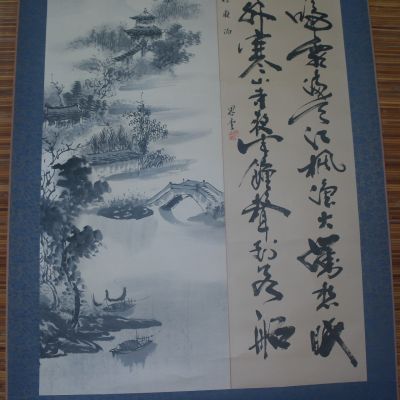 啼霜滿天江楓漁火對愁眠
外寒山寺夜半鐘聲到客船